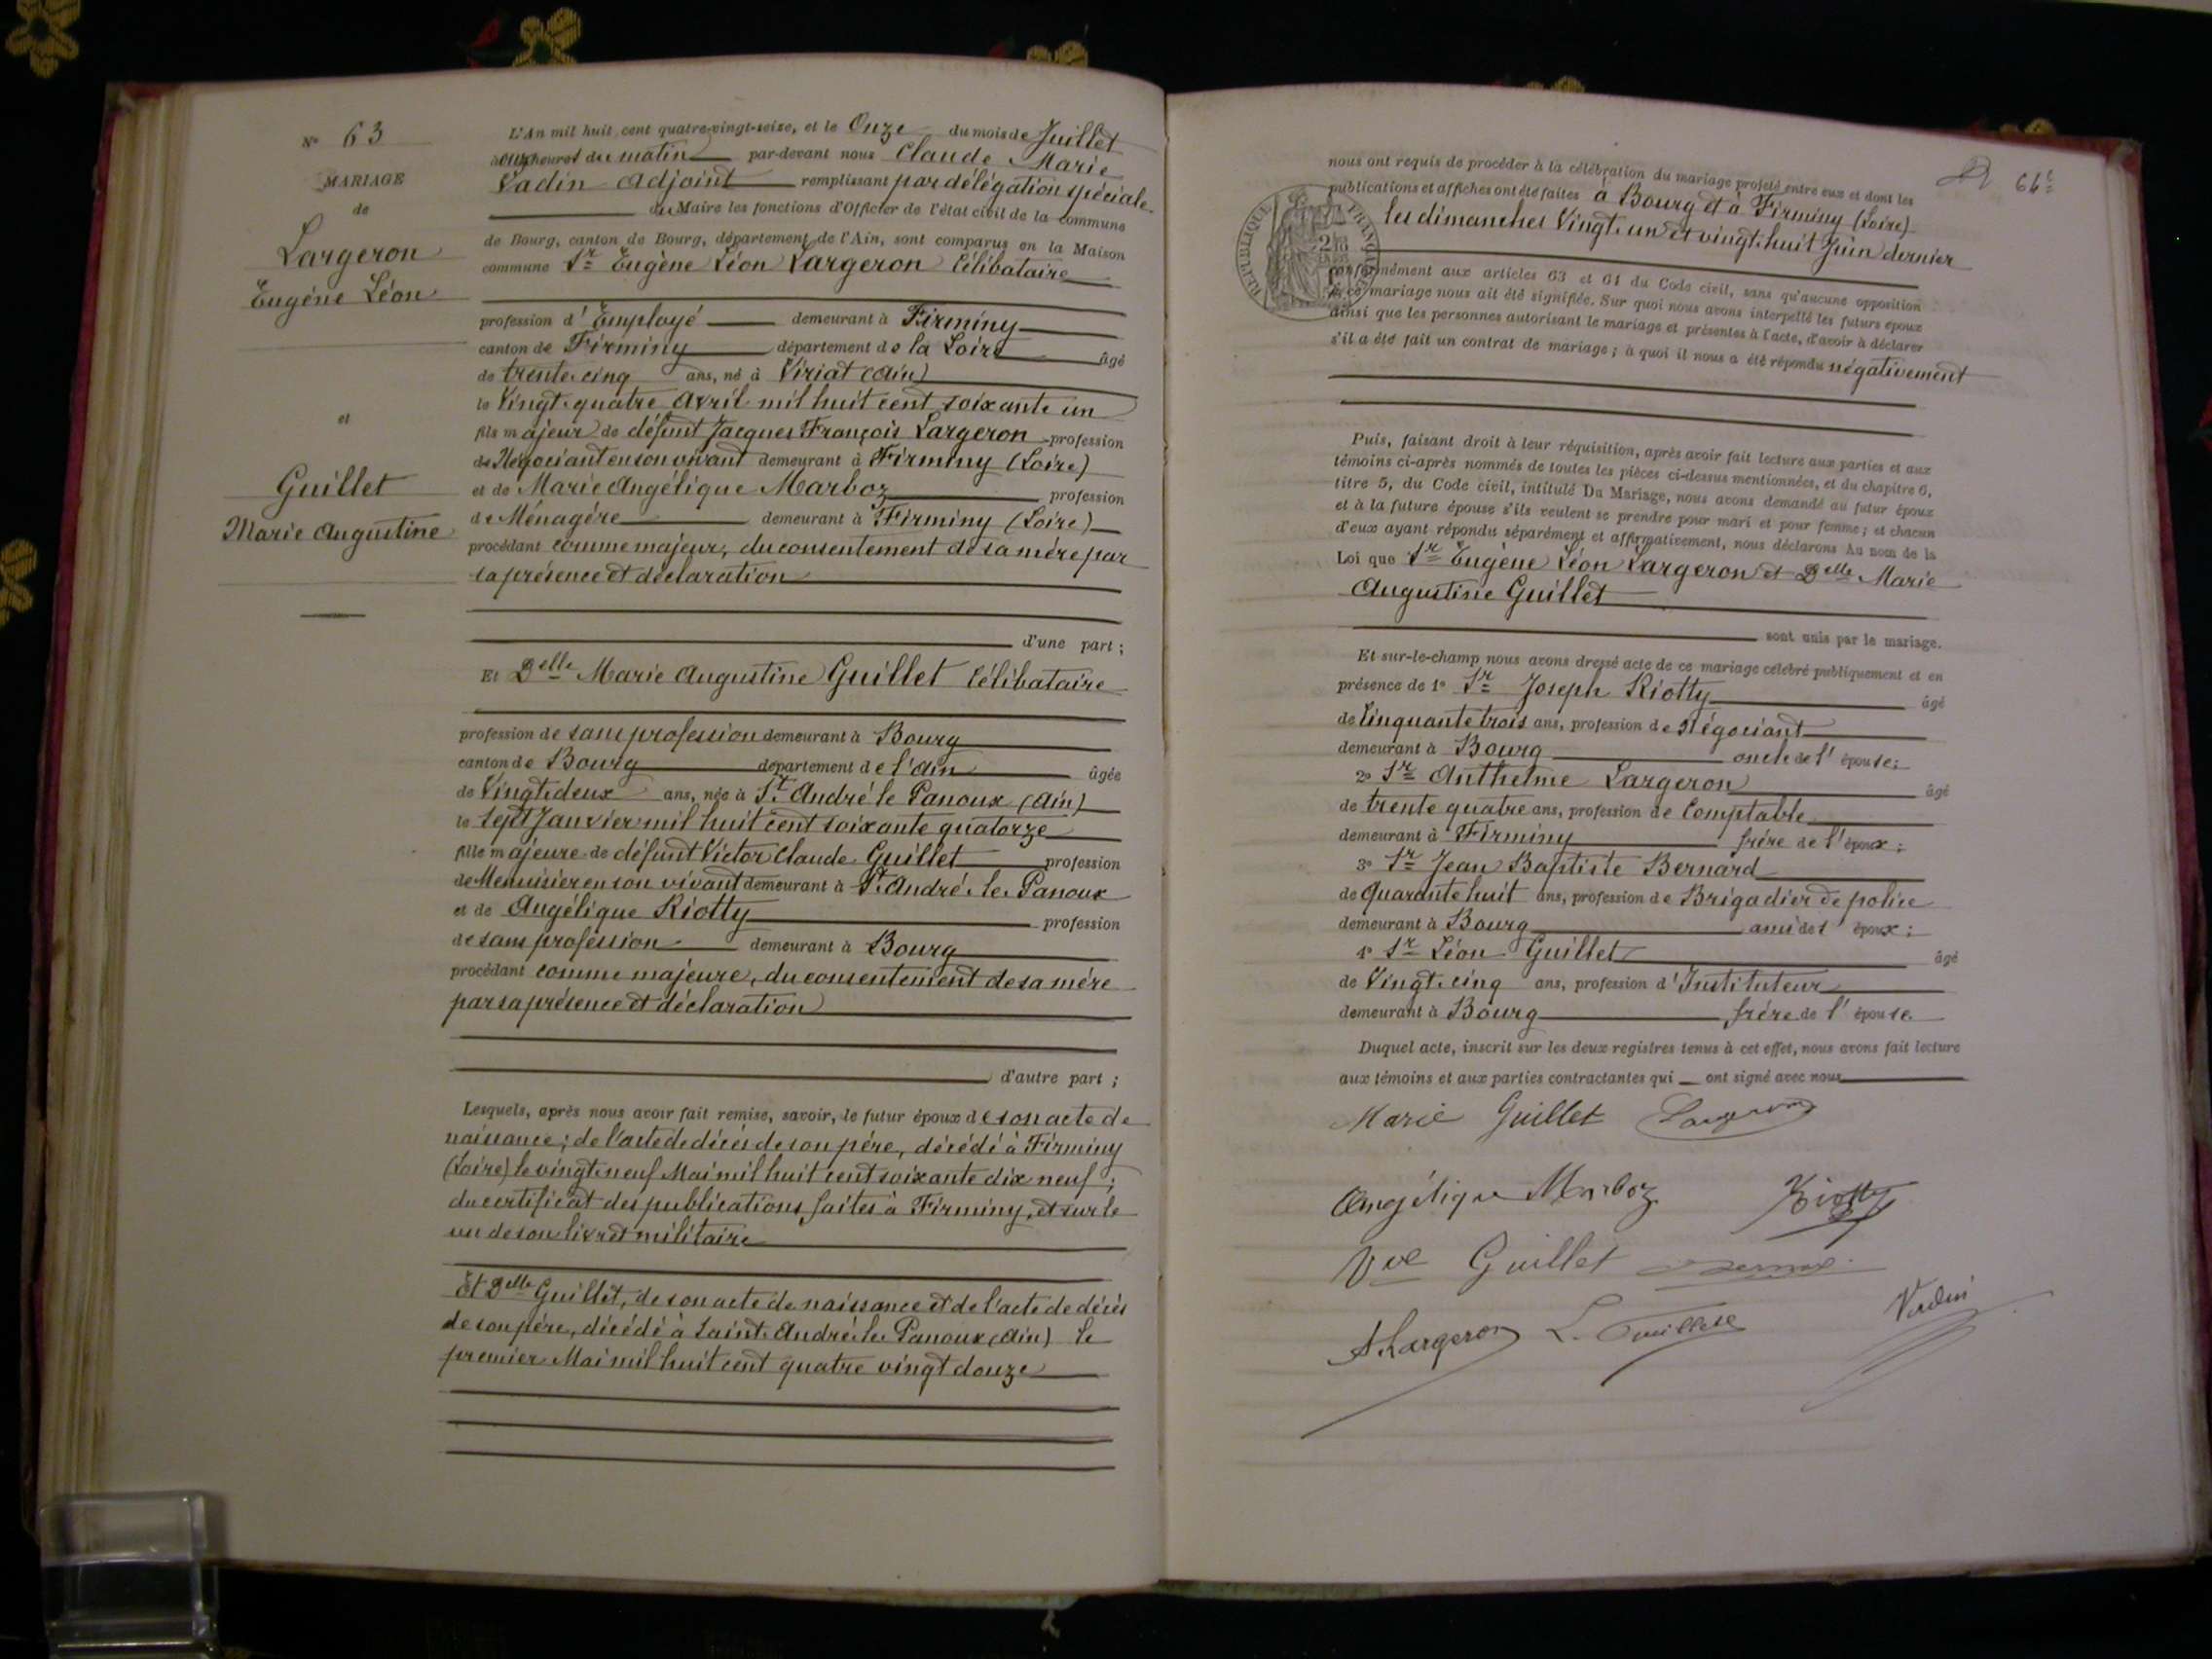 N° 63
MARIAGE
de
Largeron
Eugène Léon
et
Guillet
Marie Augustine
L'An mil huit cent quatre-vingt-seize, et le Onze du mois de Juillet
à onze heures du matin par-devant nous Claude Marie
Vadin Adjoint remplissant par délégation spéciale
du Maire les fonctions d'Officier de l'état civil de la commune
de Bourg, canton de Bourg, département de l'Ain, sont comparus en la Maison
commune Sr Eugène Léon Largeron Célibataire
profession d'Employé demeurant à Firminy
canton de Firminy département de la Loire âgé
de trente cinq ans, né à Viriat (Ain)
le Vingt quatre Avril mil huit cent soixante un
fils majeur de défunt Jacques François Largeron profession
de Négociant en son vivant demeurant à Firminy (Loire)
et de Marie Angélique Marboz profession
de Ménagère demeurant à Firminy (Loire)
procédant comme majeur, du consentement de sa mère par
sa présence et déclaration
d'une part ;
Et Delle Marie Augustine Guillet Célibataire
profession de sans profession demeurant à Bourg
canton de Bourg département de l'Ain âgée
de Vingt deux ans, née à St André le Panoux (Ain)
le sept Janvier mil huit cent soixante quatorze
fille majeure de défunt Victor Claude Guillet profession
de Menuisier en son vivant demeurant à St André-le-Panoux
et de Angélique Riotty profession
de sans profession demeurant à Bourg
procédant comme majeure, du consentement de sa mère
par sa présence et déclaration
d'autre part ;
Lesquels, après nous avoir fait remise, savoir, le futur époux de son acte de
naissance ; de l'acte de décès de son père, décédé à Firminy
(Loire) le vingt neuf Mai mil huit cent soixante dix neuf ;
du certificat des publications faites à Firminy, et sur le
vu de son livret militaire
Et Delle Guillet, de son acte de naissance et de l'acte de décès
de son père, décédé à Saint-André-le-Panoux (Ain) le
premier Mai mil huit cent quatre vingt douze
64e
nous ont requis de procéder à la célébration du mariage projeté entre eux et dont les
publications et affiches ont été faites à Bourg et à Firminy (Loire)
les dimanches Vingt un et vingt huit Juin dernier
RÉPUBLIQUE FRANÇAISE
conformément aux articles 63 et 64 du Code civil, sans qu'aucune opposition
à ce mariage nous ait été signifiée. Sur quoi nous avons interpellé les futurs époux
ainsi que les personnes autorisant le mariage et présentes à l'acte, d'avoir à déclarer
s'il a été fait un contrat de mariage ; à quoi il nous a été répondu négativement
Puis, faisant droit à leur réquisition, après avoir fait lecture aux parties et aux
témoins ci-après nommés de toutes les pièces ci-dessus mentionnées, et du chapitre 6,
titre 5, du Code civil, intitulé Du Mariage, nous avons demandé au futur époux
et à la future épouse s'ils veulent se prendre pour mari et pour femme ; et chacun
d'eux ayant répondu séparément et affirmativement, nous déclarons Au nom de la
Loi que Sr Eugène Léon Largeron et Delle Marie
Augustine Guillet
sont unis par le mariage.
Et sur-le-champ nous avons dressé acte de ce mariage célébré publiquement et en
présence de 1° Sr Joseph Riotty âgé
de Cinquante trois ans, profession de Négociant
demeurant à Bourg oncle de l'épouse ;
2° Sr Anthelme Largeron âgé
de trente quatre ans, profession de Comptable
demeurant à Firminy frère de l'époux ;
3° Sr Jean Baptiste Bernard
de Quarante huit ans, profession de Brigadier de police
demeurant à Bourg ami de l'époux ;
4° Sr Léon Guillet âgé
de Vingt cinq ans, profession d'Instituteur
demeurant à Bourg frère de l'épouse.
Duquel acte, inscrit sur les deux registres tenus à cet effet, nous avons fait lecture
aux témoins et aux parties contractantes qui ont signé avec nous
Marie Guillet Largeron
Angélique Marboz Riotty
Vve Guillet
A Largeron L. Guillet Vadin